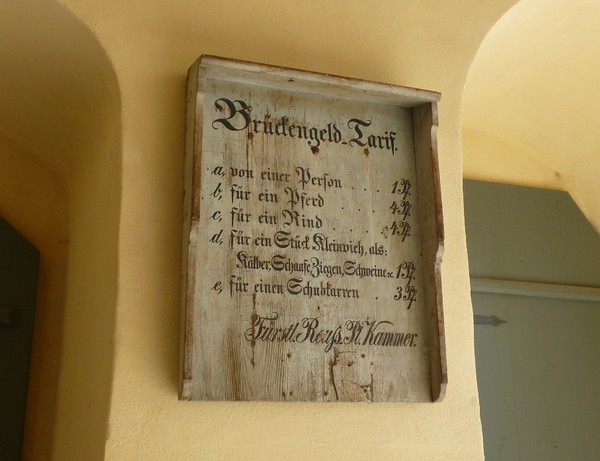 Brückengeld-Tarif.
a, von einer Person .... 1 ₰.
b, für ein Pferd .... 4 ₰.
c, für ein Rind .... 4 ₰.
d, für ein Stück Kleinvieh, als:
Kälber, Schaafe Ziegen, Schweine ꝛc. 1 ₰.
e, für einen Schubkarren . 3 ₰.
Fürstl. Reuss. Pl. Kammer.